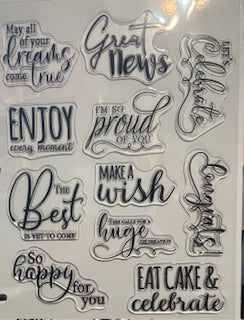 May all
of your
dreams
come true
Great
News
LET'S
Celebrate
ENJOY
every moment
I'M SO
proud
OF YOU
MAKE A
wish
Congrats!
THE
Best
IS YET TO COME
THIS CALLS FOR A
huge
CELEBRATION
So
happy
for
you
EAT CAKE &
celebrate